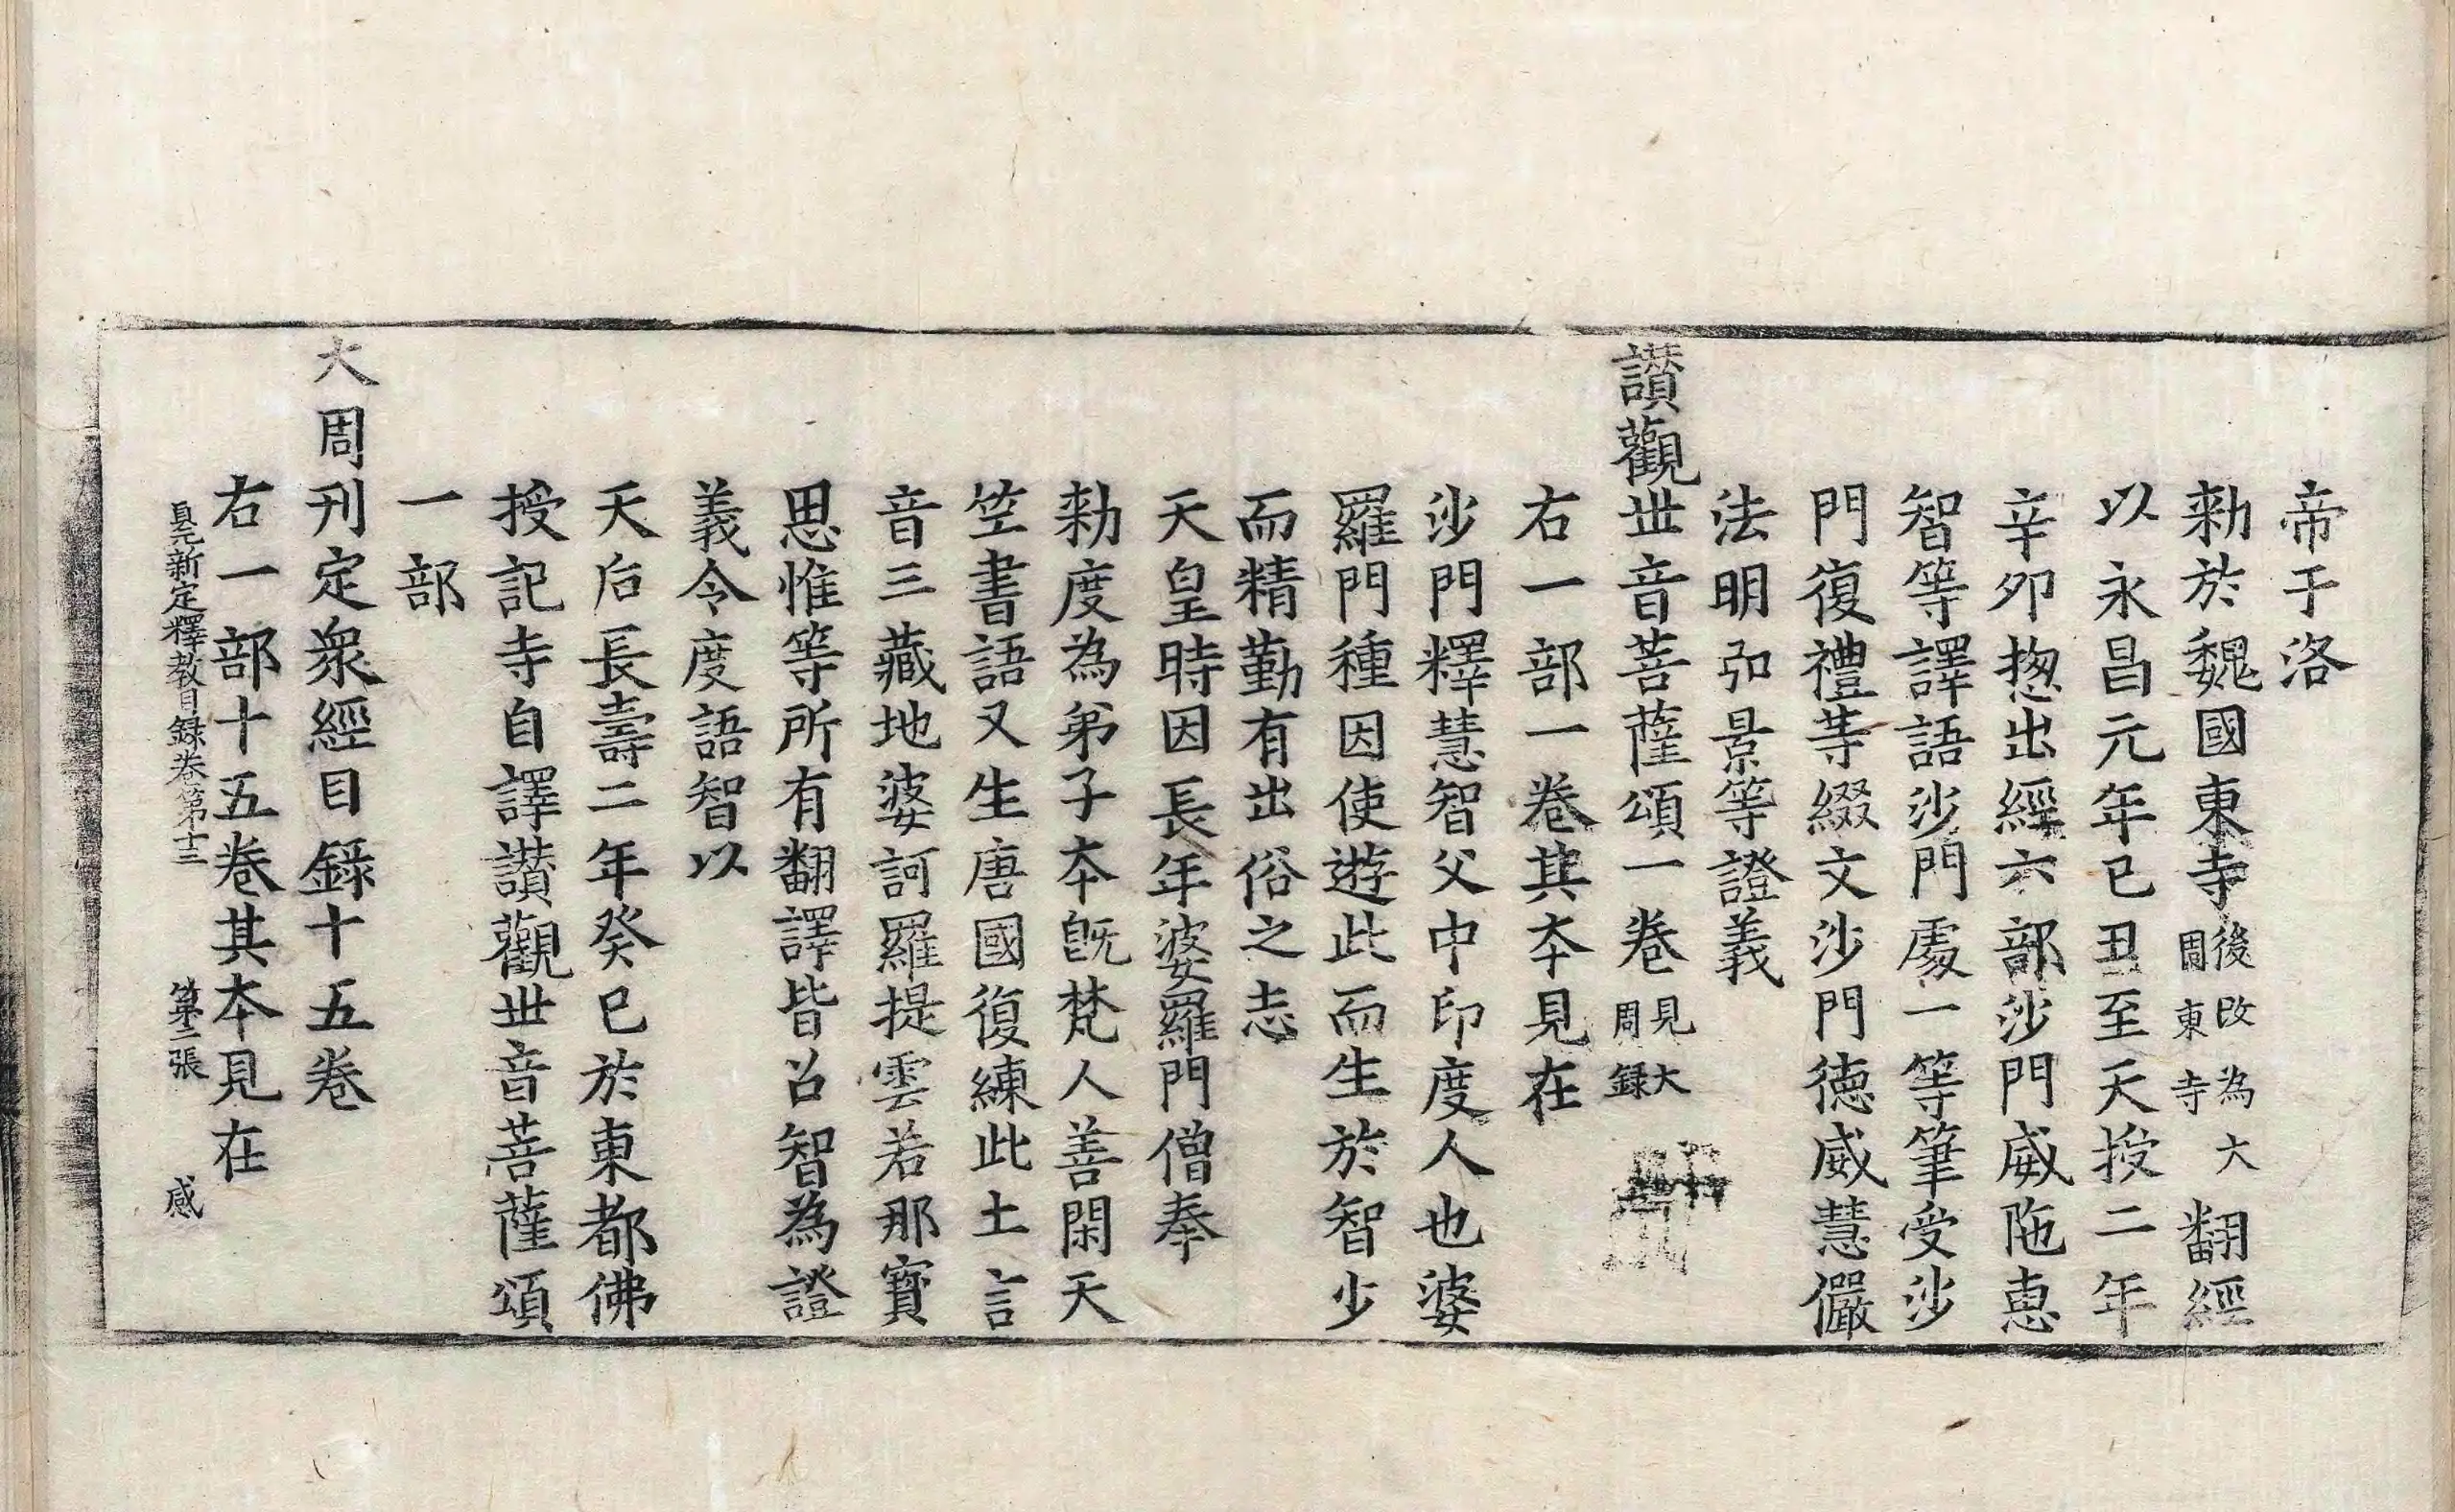 帝于洛
勑於魏國東寺後改為大周東寺翻經
以永昌元年已丑至天授二年
辛夘揔出經六部沙門威陁惠
智等譯語沙門處一等筆受沙
門復禮等綴文沙門德威慧儼
法明弘景等證義
讃觀世音菩薩頌一卷見大周録
右一部一卷其本見在
沙門釋慧智父中印度人也婆
羅門種因使遊此而生於智少
而精勤有出俗之志
天皇時因長年婆羅門僧奉
勑度為弟子本旣梵人善閑天
竺書語又生唐國復練此土言
音三藏地婆訶羅提雲若那寶
思惟等所有翻譯皆召智為證
義令度語智以
天后長壽二年癸巳於東都佛
授記寺自譯讃觀世音菩薩頌
一部
大周刊定衆經目錄十五卷
右一部十五卷其本見在
貞元新定釋教目録卷第十三 第二張 感